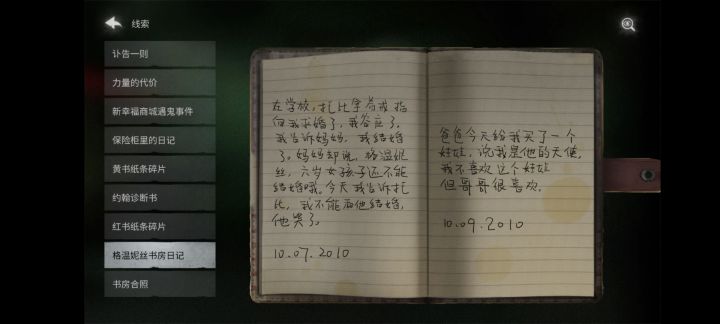 线索
讣告一则
力量的代价
新幸福商城遇鬼事件
保险柜里的日记
黄书纸条碎片
约翰诊断书
红书纸条碎片
格温妮丝书房日记
书房合照
在学校，托比拿着戒指
向我求婚了，我答应了，
我告诉妈妈，我结婚
了。妈妈却说，格温妮
丝，六岁女孩子还不能
结婚哦。今天我告诉托
比，我不能和他结婚，
他哭了。
10.07.2010
爸爸今天给我买了一个
好娃，说我是他的天使，
我不喜欢这个好娃
但哥哥很喜欢。
10.09.2010